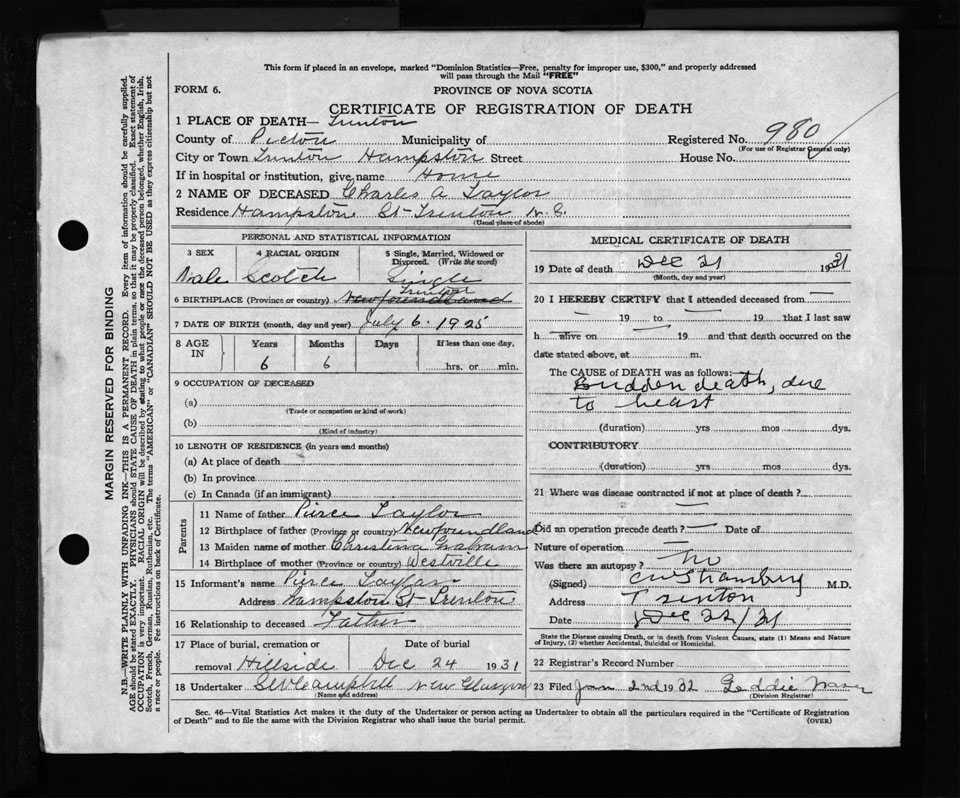 This form if placed in an envelope, marked "Dominion Statistics—Free, penalty for improper use, $300," and properly addressed
will pass through the Mail "FREE"
FORM 6.
PROVINCE OF NOVA SCOTIA
CERTIFICATE OF REGISTRATION OF DEATH
1 PLACE OF DEATH— Trenton
County of Pictou Municipality of Registered No. 980
(For use of Registrar General only)
City or Town Trenton Hampston Street House No.
If in hospital or institution, give name Home
2 NAME OF DECEASED Charles A Taylor
Residence Hampston St-Trenton N.S.
(Usual place of abode)
PERSONAL AND STATISTICAL INFORMATION
3 SEX 4 RACIAL ORIGIN 5 Single, Married, Widowed or
Divorced. (Write the word)
Male Scotch Single
Trenton
6 BIRTHPLACE (Province or country) Newfoundland
7 DATE OF BIRTH (month, day and year) July 6. 1925
8 AGE IN Years Months Days If less than one day,
6 6 hrs. or min.
9 OCCUPATION OF DECEASED
(a)
(Trade or occupation or kind of work)
(b)
(Kind of industry)
10 LENGTH OF RESIDENCE (in years and months)
(a) At place of death
(b) In province
(c) In Canada (if an immigrant)
Parents
11 Name of father Pierce Taylor
12 Birthplace of father (Province or country) Newfoundland
13 Maiden name of mother Christina Graham
14 Birthplace of mother (Province or country) Westville
15 Informant's name Pierce Taylor
Address Hampston St-Trenton
16 Relationship to deceased Father
17 Place of burial, cremation or Date of burial
removal Hillside Dec 24 1931
18 Undertaker Campbell New Glasgow
(Name and address)
MEDICAL CERTIFICATE OF DEATH
19 Date of death Dec 21 1931
(Month, day and year)
20 I HEREBY CERTIFY that I attended deceased from
19 to 19 that I last saw
h alive on 19 and that death occurred on the
date stated above, at m.
The CAUSE of DEATH was as follows:
Sudden death, due
to heart
(duration) yrs mos dys.
CONTRIBUTORY
(duration) yrs mos dys.
21 Where was disease contracted if not at place of death?
Did an operation precede death? Date of
Nature of operation
Was there an autopsy? No
(Signed) M.D.
Address Trenton
Date Dec 22/31
State the Disease causing Death, or in death from Violent Causes, state (1) Means and Nature
of Injury, (2) whether Accidental, Suicidal or Homicidal.
22 Registrar's Record Number
23 Filed Jan 2nd 1932
(Division Registrar)
Sec. 46—Vital Statistics Act makes it the duty of the Undertaker or person acting as Undertaker to obtain all the particulars required in the "Certificate of Registration
of Death" and to file the same with the Division Registrar who shall issue the burial permit.
(OVER)
MARGIN RESERVED FOR BINDING
N.B.—WRITE PLAINLY WITH UNFADING INK—THIS IS A PERMANENT RECORD. Every item of information should be carefully supplied.
AGE should be stated EXACTLY. PHYSICIANS should STATE CAUSE OF DEATH in plain terms, so that it may be properly classified. Exact statement of
OCCUPATION is very important. RACIAL ORIGIN will be described by stating to what people or race the deceased person belonged, whether English, Irish,
Scotch, French, German, Russian, Ruthenian, etc. The terms "AMERICAN" or "CANADIAN" SHOULD NOT BE USED as they express citizenship but not
a race or people. See instructions on back of Certificate.